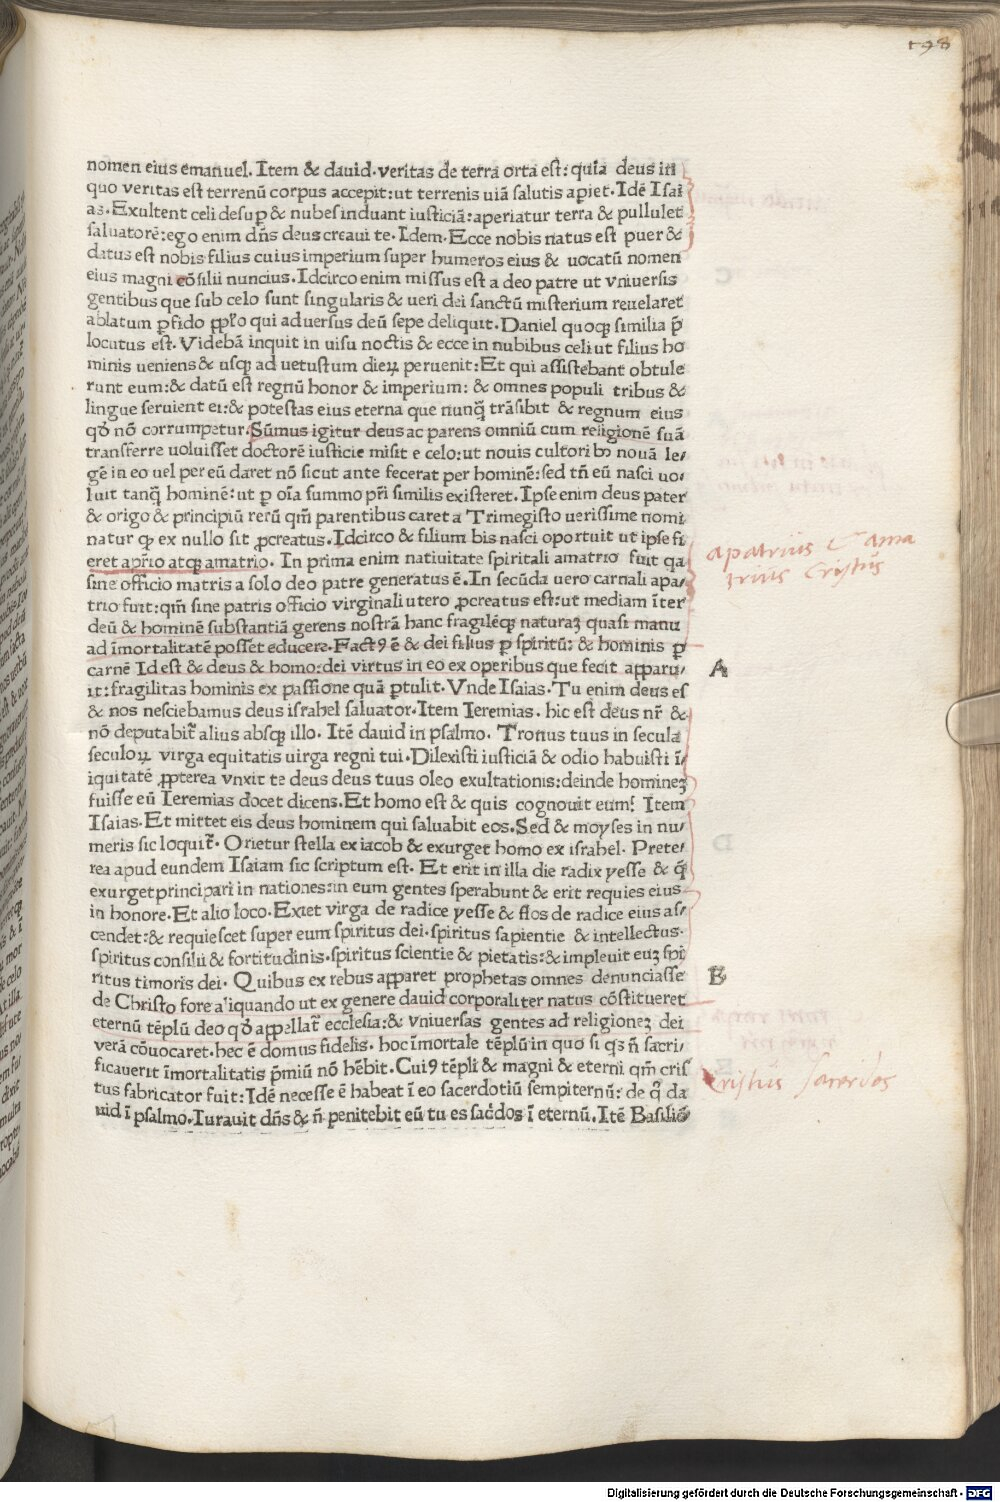 198
nomen eius emanuel. Item & dauid. veritas de terra orta est: quia deus in
quo veritas est terrenū corpus accepit: ut terrenis uiā salutis apiet. Idē Isai
as. Exultent celi desup & nubes induant iusticiā: aperiatur terra & pullulet
saluatorē: ego enim dn̄s deus creaui te. Idem. Ecce nobis natus est puer &
datus est nobis filius cuius imperium super humeros eius & uocatū nomen
eius magni cōsilii nuncius. Idcirco enim missus est a deo patre ut vniuersis
gentibus que sub celo sunt singularis & ueri dei sanctū misterium reuelaret
ablatum ꝑfido ꝓpl̄o qui aduersus deū sepe deliquit. Daniel quoqꝫ similia p̄
locutus est. Videbā inquit in uisu noctis & ecce in nubibus celi ut filius ho
minis ueniens & usqꝫ ad uetustum dieꝝ peruenit: Et qui assistebant obtule
runt eum: & datū est regnū honor & imperium: & omnes populi tribus &
lingue seruient ei: & potestas eius eterna que nunqꝫ̄ trāsibit & regnum eius
qđ nō corrumpetur. Sūmus igitur deus ac parens omniū cum religionē suā
transferre uoluisset doctorē iusticie misit e celo: ut nouis cultoribꝫ nouā le⸗
gē in eo uel per eū daret nō sicut ante fecerat per hominē: sed tn̄ eū nasci uo⸗
luit tanqꝫ̄ hominē: ut ꝑ oīa summo pr̄i similis existeret. Ipse enim deus pater
& origo & principiū rerū qm̄ parentibus caret a Trimegisto uerissime nomi⸗
natur qꝫ ex nullo sit ꝓcreatus. Idcirco & filium bis nasci oportuit ut ipse fi
eret apr̄io atqꝫ amatrio. In prima enim natiuitate spiritali amatrio fuit qa
sine officio matris a solo deo patre generatus ē. In secūda uero carnali apa⸗
trio fuit: qm̄ sine patris officio virginali utero ꝓcreatus est: ut mediam īter
deū & hominē substantiā gerens nostrā hanc fragilēqꝫ naturaꝫ quasi manu
ad īmortalitatē posset educere. Factꝰ ē & dei filius ꝑ spiritū: & hominis ꝑ
carnē Id est & deus & homo: dei virtus in eo ex operibus que fecit apparu⸗
it: fragilitas hominis ex passione quā ꝑtulit. Vnde Isaias. Tu enim deus es
& nos nesciebamus deus israhel saluator. Item Ieremias. hic est deus nr̄ &
nō deputabit᷑ alius absqꝫ illo. Itē dauid in psalmo. Tronus tuus in secula
seculoꝝ virga equitatis uirga regni tui. Dilexisti iusticiā & odio habuisti ī⸗
iquitatē ꝓpterea vnxit te deus deus tuus oleo exultationis: deinde homineꝫ
fuisse eū Ieremias docet dicens. Et homo est & quis cognouit eum? Item
Isaias. Et mittet eis deus hominem qui saluabit eos. Sed & moyses in nu⸗
meris sic loquit᷑. Orietur stella ex iacob & exurget homo ex israhel. Prete⸗
rea apud eundem Isaiam sic scriptum est. Et erit in illa die radix yesse & q̄
exurget principari in nationes: in eum gentes sperabunt & erit requies eius
in honore. Et alio loco. Exiet virga de radice yesse & flos de radice eius as⸗
cendet: & requiescet super eum spiritus dei. spiritus sapientie & intellectus.
spiritus consilii & fortitudinis. spiritus scientie & pietatis: & impleuit euꝫ spi
ritus timoris dei. Quibus ex rebus apparet prophetas omnes denunciasse
de Christo fore aliquando ut ex genere dauid corporaliter natus cōstitueret
eternū tēplū deo qđ appellat᷑ ecclesia: & vniuersas gentes ad religioneꝫ dei
verā cōuocaret. hec ē domus fidelis. hoc īmortale tēplū in quo si qꝫ n̄ sacri⸗
ficauerit īmortalitatis p̄miū nō hēbit. Cuiꝰ tēpli & magni & eterni qm̄ cris
tus fabricator fuit: Idē necesse ē habeat ī eo sacerdotiū sempiternū: de q̄ da
uid ī psalmo. Iurauit dn̄s & n̄ penitebit eū tu es sac̄dos ī eternū. Itē Basiliō
apatrius & ama
trius cristus
A
B
cristus sacerdos
Digitalisierung gefördert durch die Deutsche Forschungsgemeinschaft - DFG